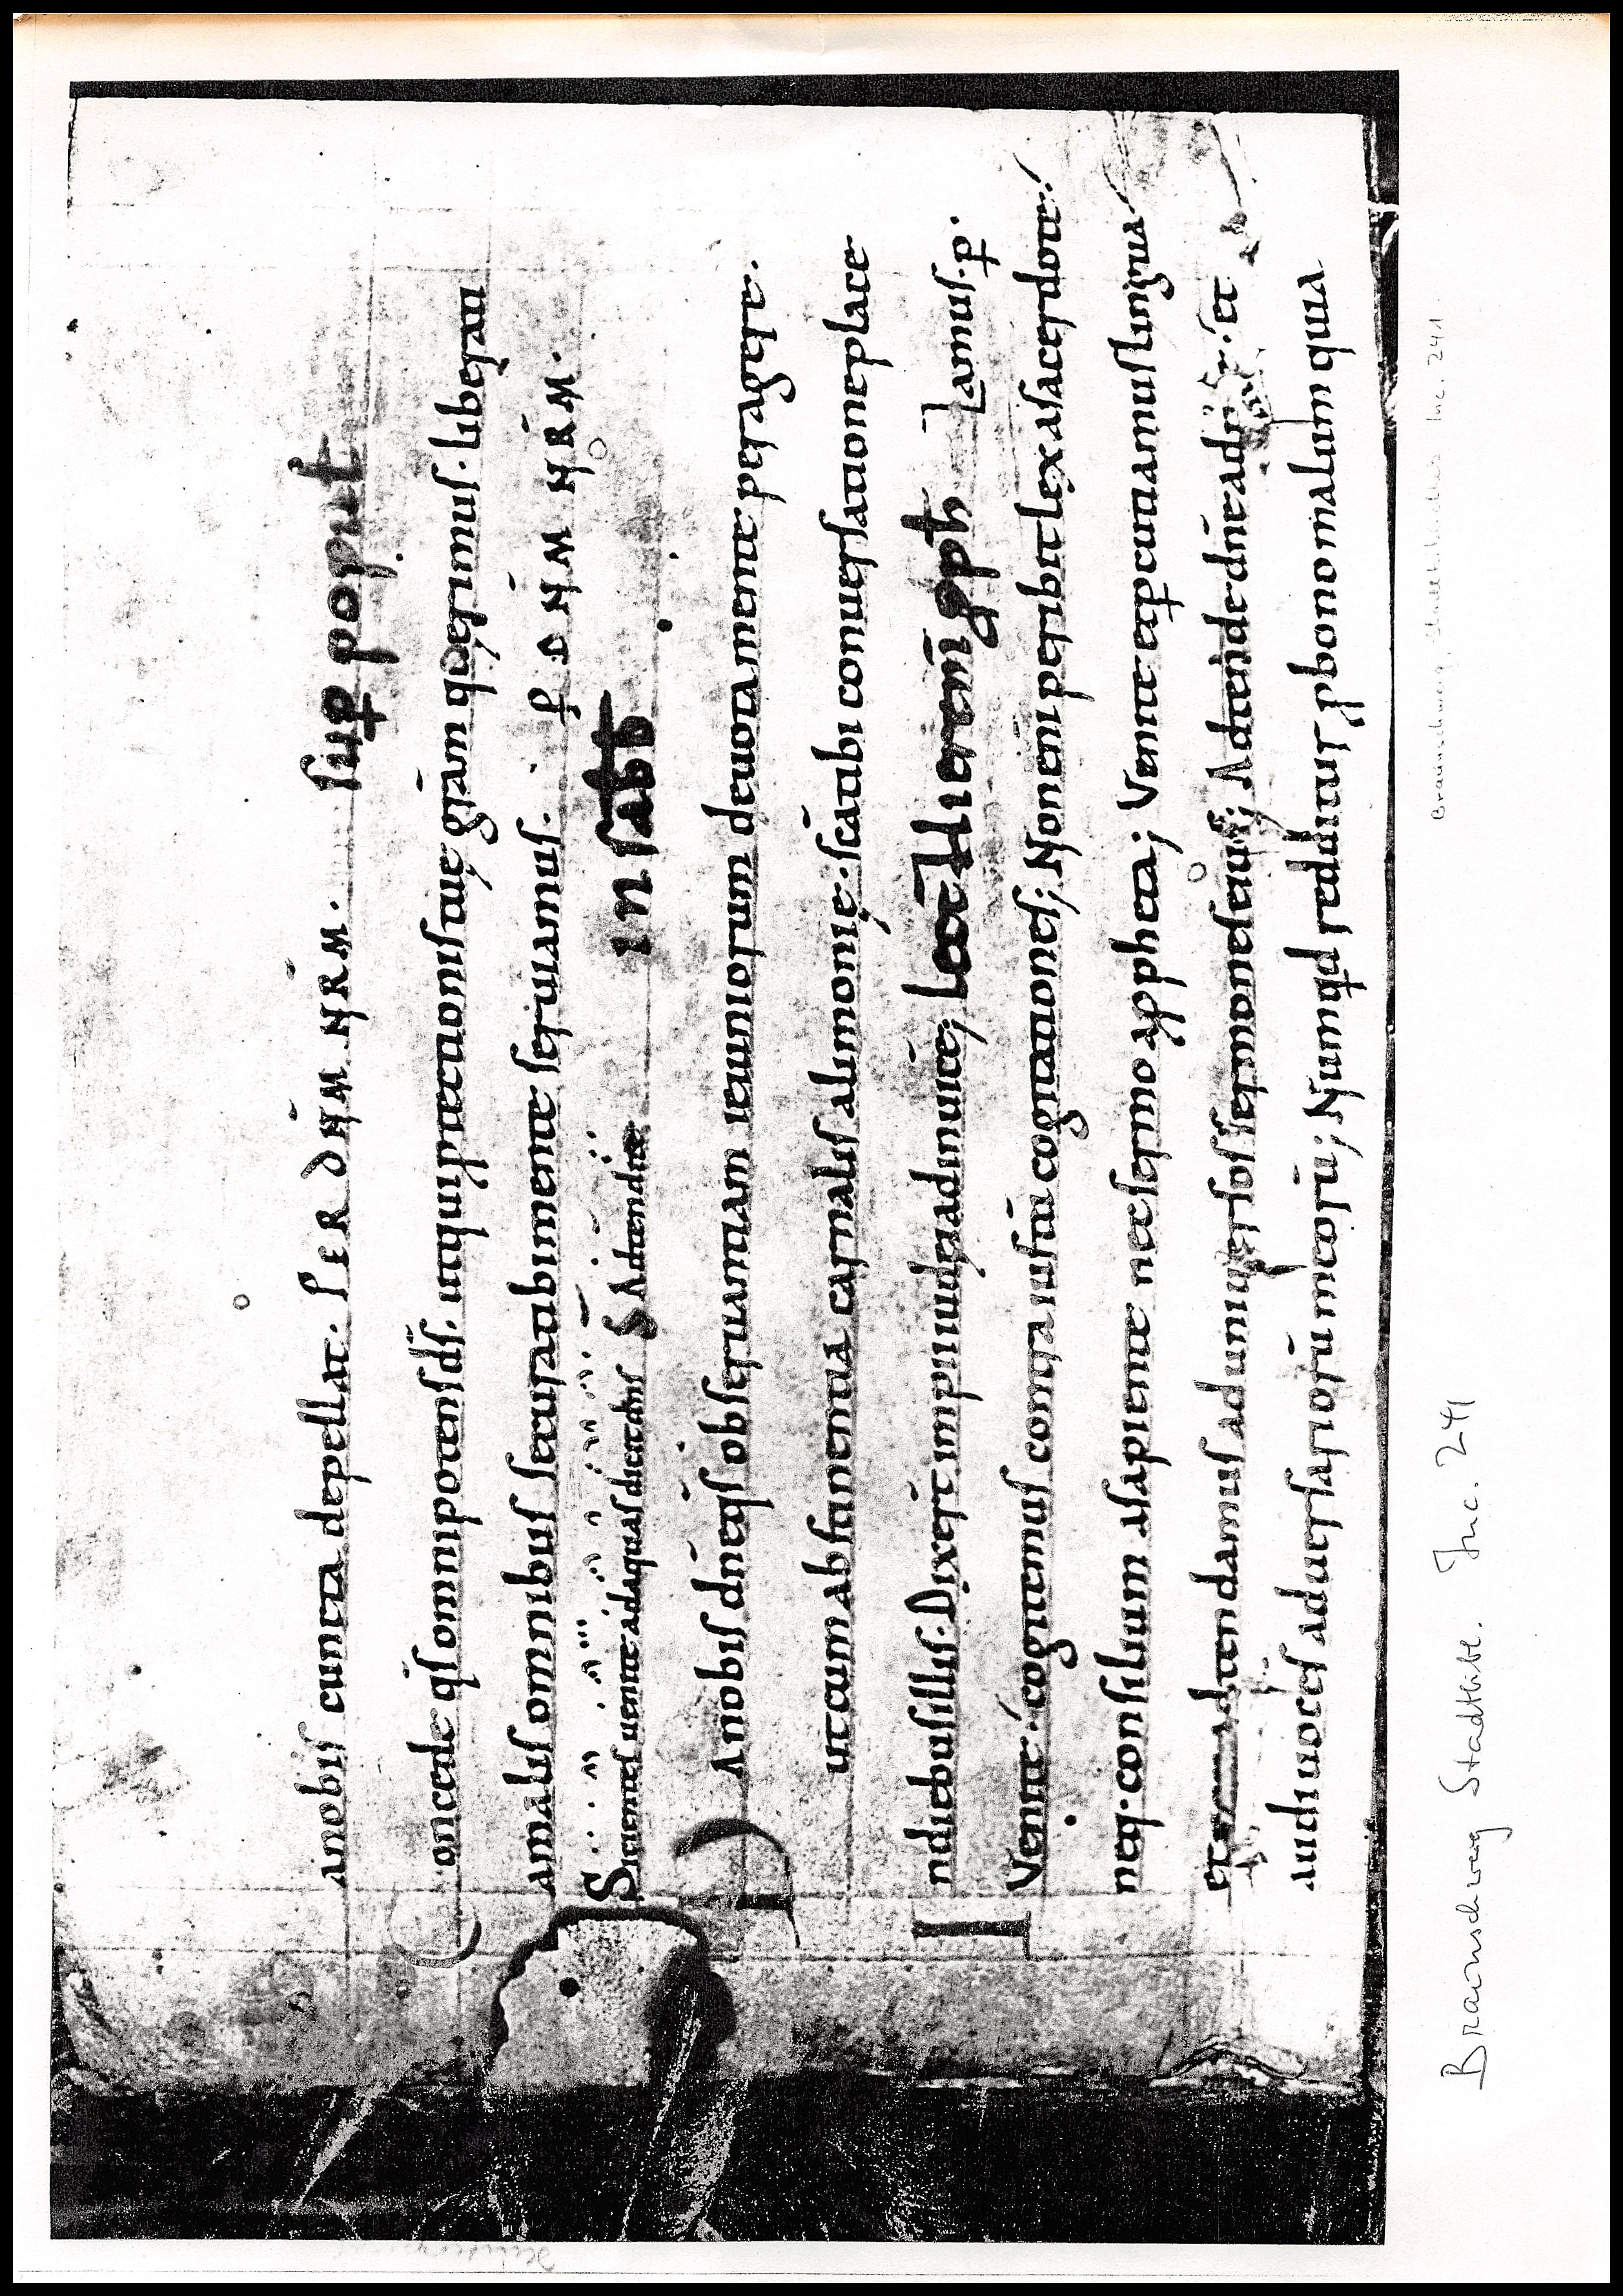 anobis cuncta depellat. PER DN̄M NR̄M. sup̱ popul̄
Concede qs̄ omnipotens ds̄. utquiꝓtectionis tuę grām querimus. liberati
amalis omnibus securatibimente seruiamus. P̱ DN̄M NR̄M.
Sitientes uenite adaquas dicit dn̄s
in sabb̄
Da nobis dn̄e qs̄ obseruantiam ieiuniorum deuota mente peragere.
utcum abstinentia carnalis alimonię. scātibi conuersatione place
In diebus illis. Dixer̄t impii iudei adinuicē; Lec̄t Hieremī ꝓph̄ Lamus. p̱.
Venite. cogitemus contra iustū cogitationes; Non enī peribit lex asacerdote.
neq. consilium asapiente nec sermo aꝓpheta; Venite et p̱cutiamus lingua
damus ad uniuersos sermones eius; Adtende dn̄e ad et
audi uoces aduersariorū meorū; Numqd redditur ꝓ bono malum quia
Braunschweig Stadtbibl. Inc. 241
Braunschweig, Inc. 241